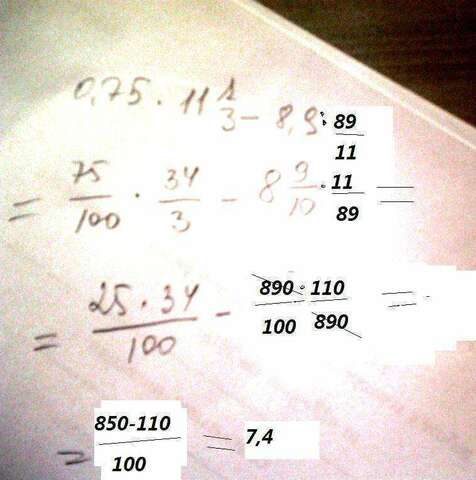 0,75 · 11 1/3 - 8,9 : 89/11
= 75/100 · 34/3 - 8 9/10 · 11/89 =
= 25 · 34/100 - 890/100 · 110/890 =
= 850-110/100 = 7,4